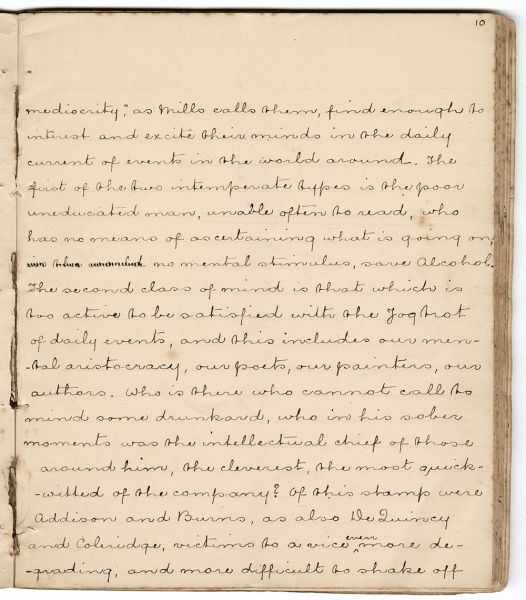 10
mediocrity," as Mills calls them, find enough to
interest and excite their minds in the daily
current of events in the world around. The
first of the two intemperate types is the poor
uneducated man, unable often to read, who
has no means of ascertaining what is going on,
no mental stimulus, save Alcohol.
The second class of mind is that which is
too active to be satisfied with the Jog trot
of daily events, and this includes our men-
-tal aristocracy, our poets, our painters, our
authors. Who is there who cannot call to
mind some drunkard, who in his sober
moments was the intellectual chief of those
around him, the cleverest, the most quick-
-witted of the company? Of this stamp were
Addison and Burns, as also De Quincy
and Coleridge, victims to a vice even more de-
-grading, and more difficult to shake off